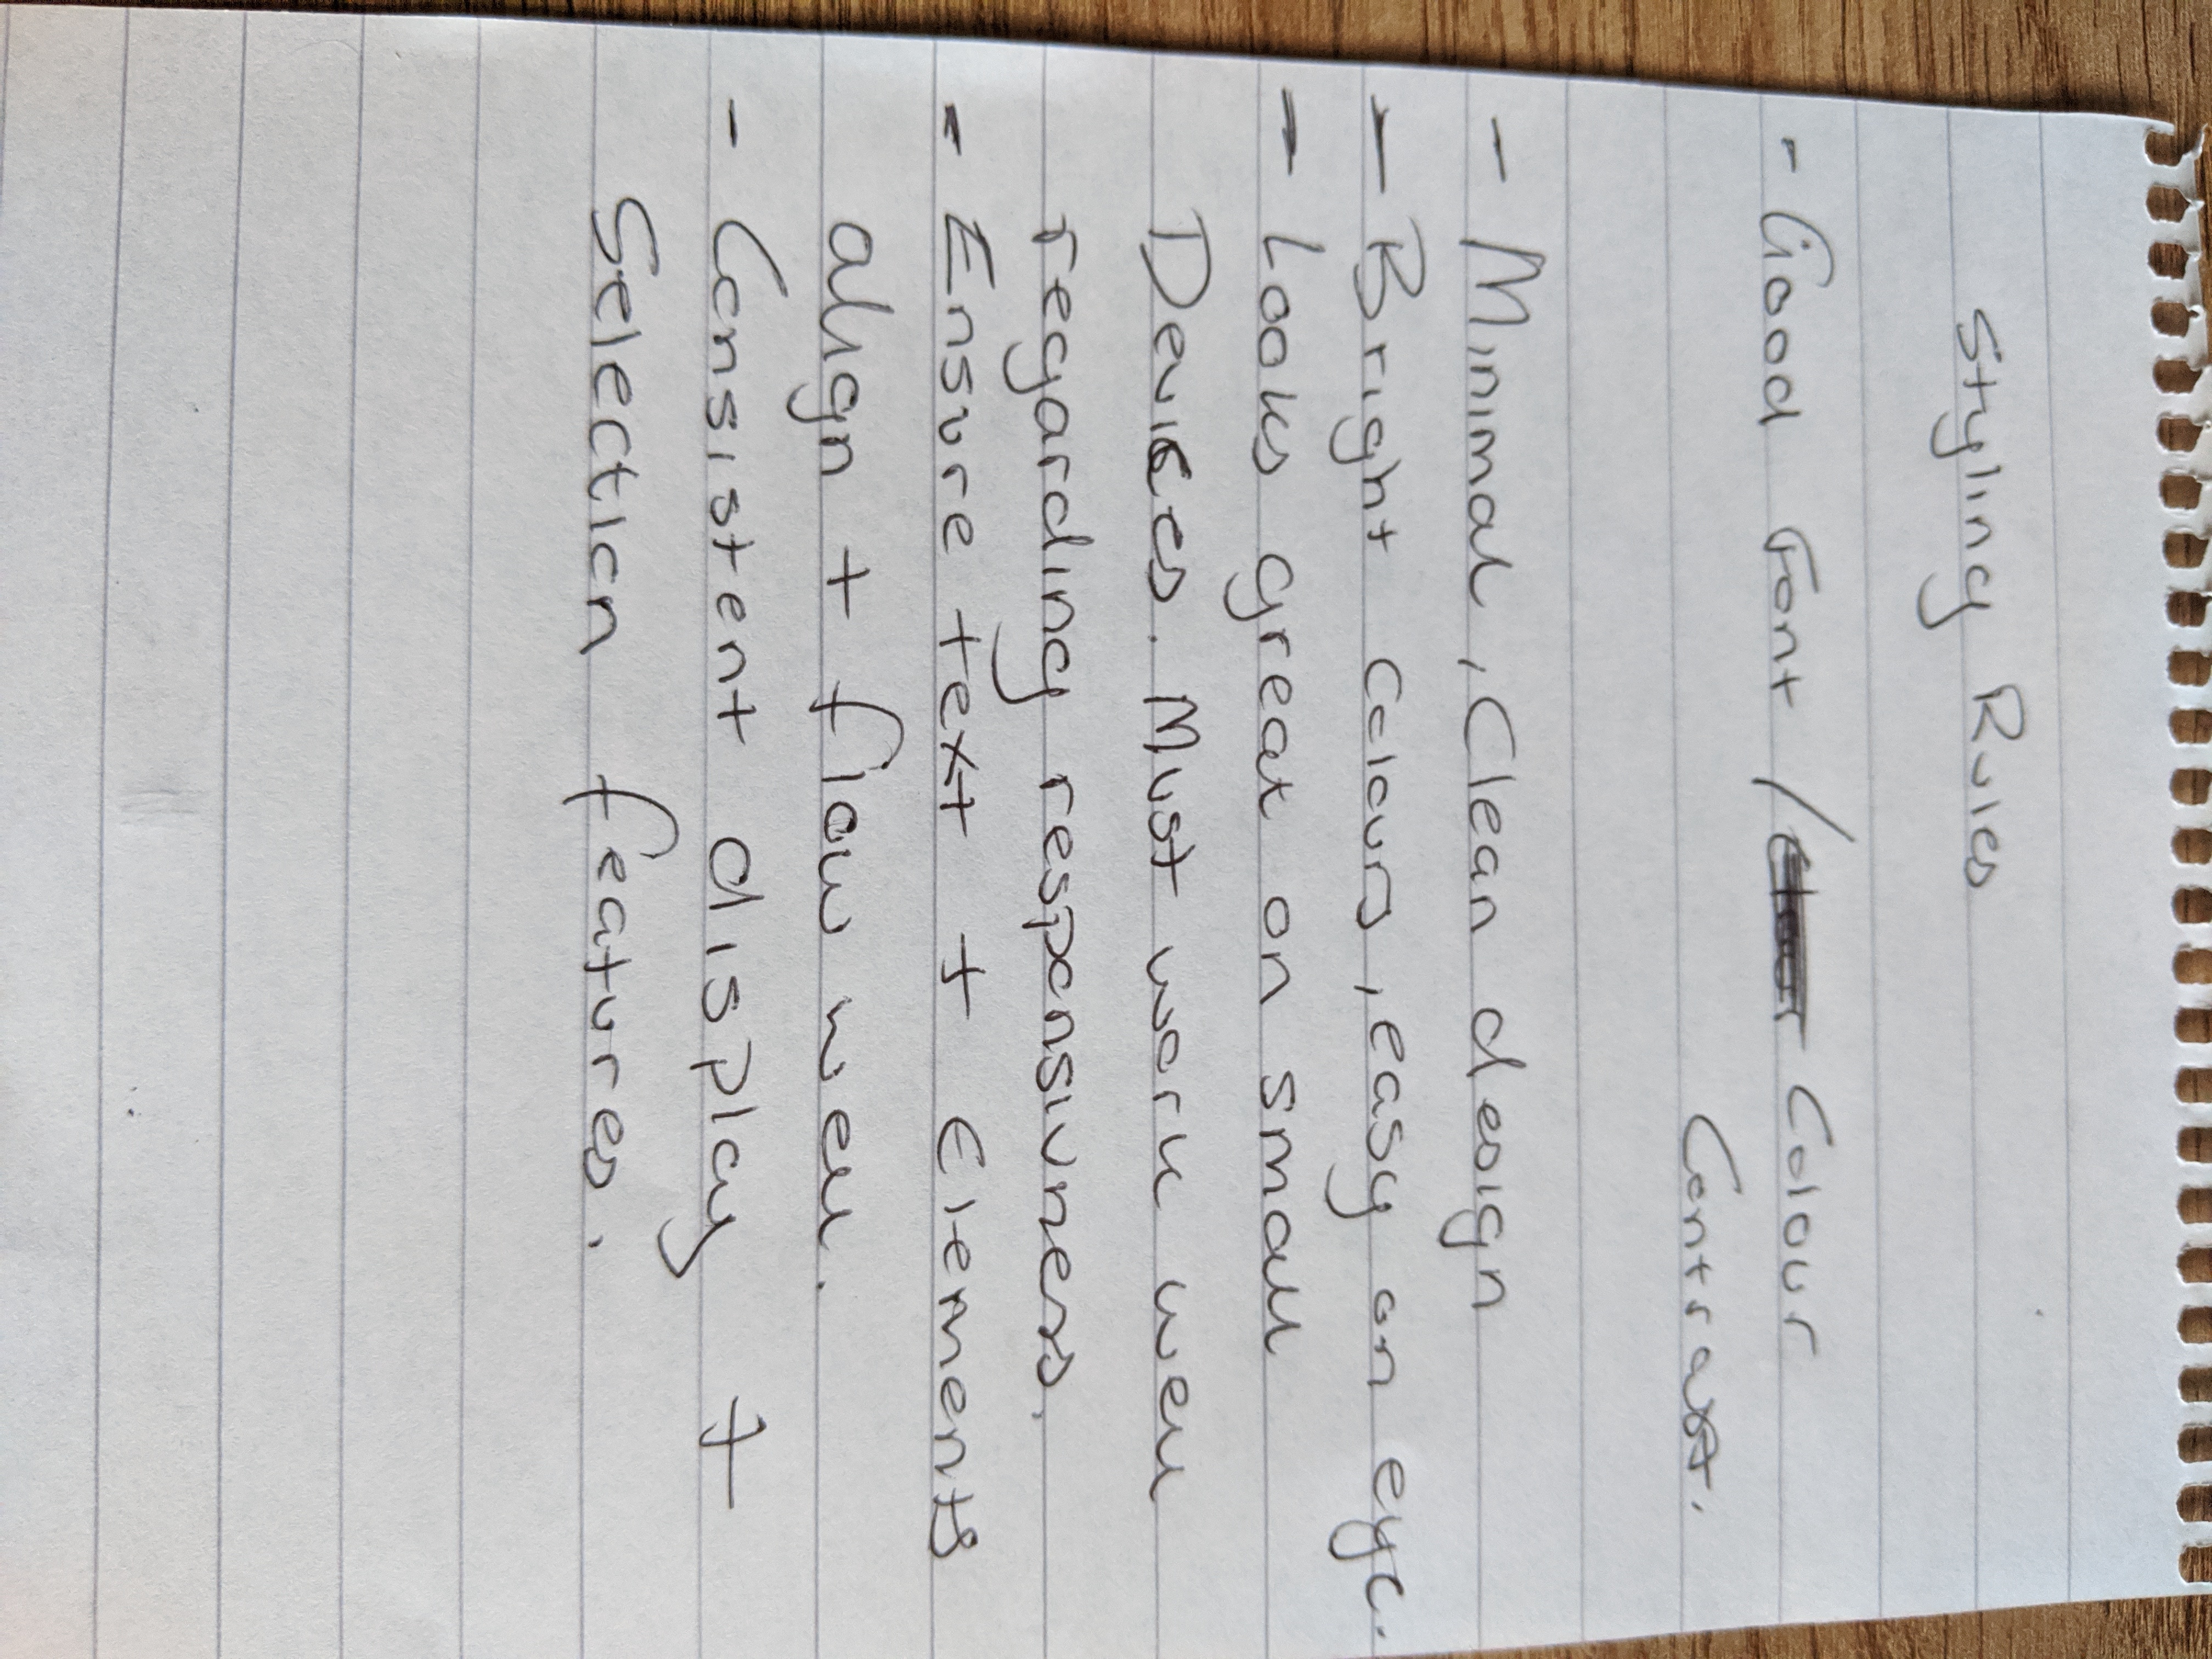 Styling Rules
- Good Font / Colour
Contrast.
- Minimal, Clean design
- Bright Colours, easy on eye.
- Looks great on small
Devices. Must work well
regarding responsivness.
- Ensure text + Elements
align + flow well.
- Consistent display +
Selection features.